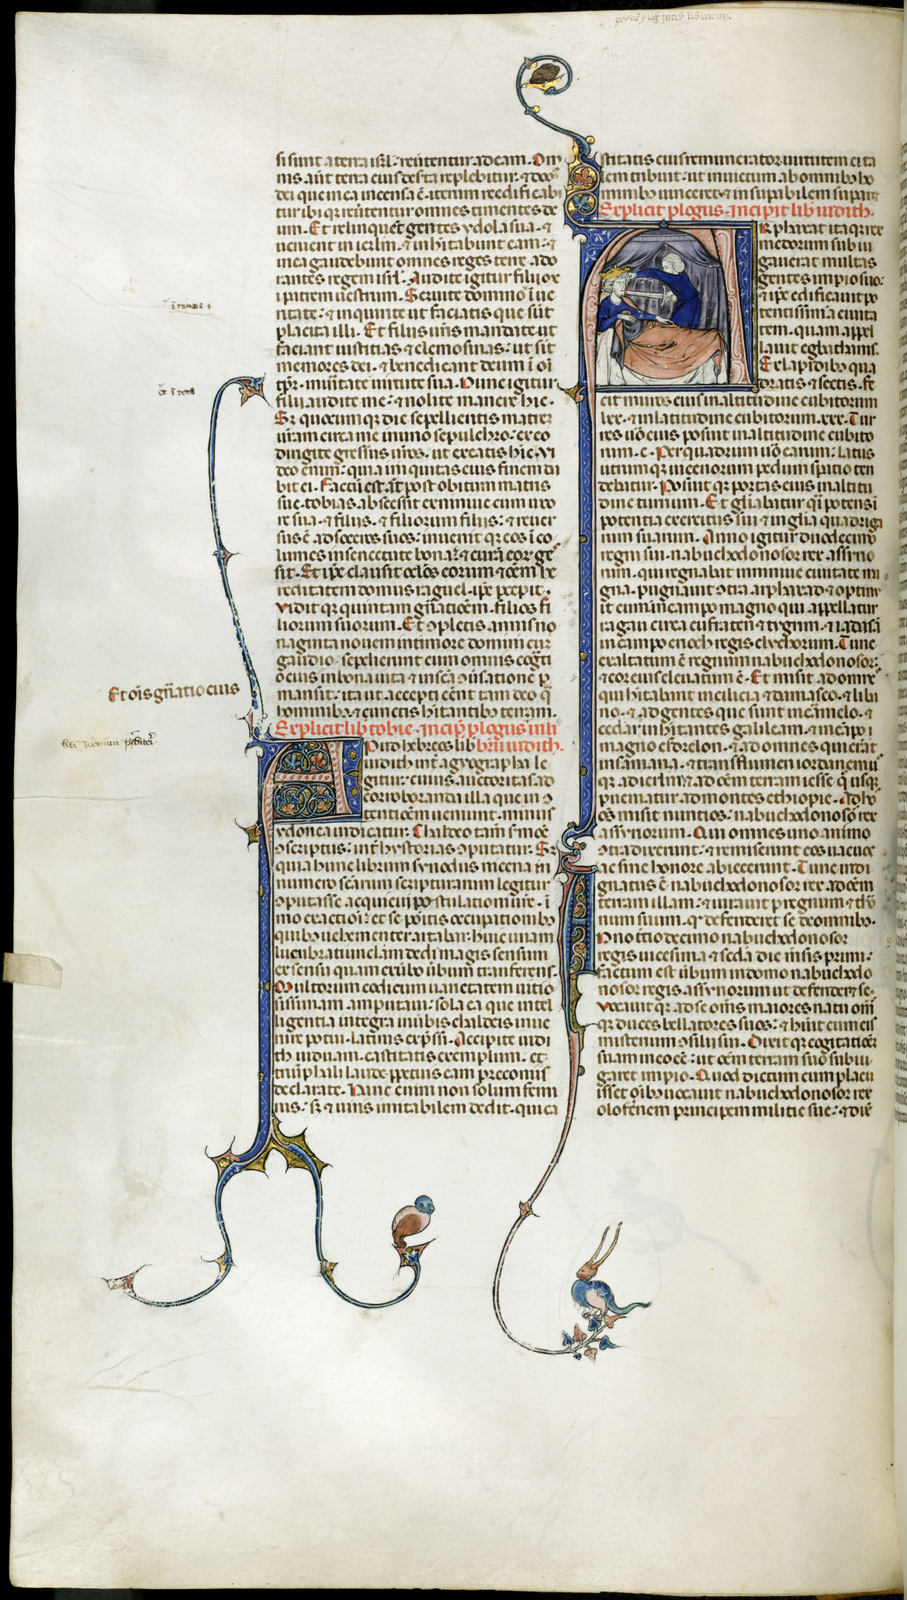 si sunt a terra isrl. reūtentur ad eam. Om
nis aūt terra eius desta replebitur. ⁊ dom
dei que incensa ē. iterum reedificabi
tur ibiqꝫ reūtentur omnes timentes de
um. Et relinquēt gentes ydola sua. ⁊
uenient in ierlm. ⁊ inhītabunt eam. ⁊
in ea gaudebunt omnes reges terre ado
rantes regem isrl. Audite igitur filii o
i patrem uestrum. Seruite domino ī ue
ritate. ⁊ inquirite ut faciatis que sūt
placita illi. Et filiis uris mandate ut
faciant iustitias ⁊ elemosinas. ut sit
memores dei. ⁊ benedicant deum ī oī
tpr. in uitate ⁊ uirtute sua. Nunc igitur
filii audite me. ⁊ nolite manere hic.
Sꝫ quocum qꝫ die sepellieritis matrē
uram circa me in uno sepulchro. ex eo
dirigite gressus uros. ut exeatis hic. Vi
deo enim. quia iniquitas eius finem da
bit ei. Factū est aūt post obitum matris
sue. tobias abscessit ex niniue cum uxo
re sua. ⁊ filiis. ⁊ filiorum filiis. ⁊ reuer
sus ē ad soceros suos. inuenit qꝫ eos ī co
lumes in senectute bona. ⁊ curā eoꝝ ges
sit. Et ipe clausit oclos eorum ⁊ oēm he
reditatem domus raguel. ipe pcepit.
Vidit qꝫ quintam gnatioēm. filios fi
liorum suorum. Et ꝯpletis annis no
naginta nouem in timore domini cuꝫ
gaudio. sepelierunt eum omnis cogti
o eius in bona uita ⁊ in scā ꝯūsatione p
mansit. ita ut accepti eēnt tam deo qꝫ
hominibꝫ ⁊ cunctis hītantibꝫ terram.
Et oīs gn̄atio eius
Explicit lib tobie. Incip plogus in li
brū iudith.
Apud hebreos lib
iudith int̄ agyographa le
gitur. cuius auctoritas ad
corroboranda illa que in ꝯ
tentioēm ueniunt. minus
ydonea iudicatur. Chaldeo tam̄ s̄mōe
ꝯscriptus. int̄ hystorias ꝯputatur. Sꝫ
quia hunc librum synodus nicena in
numero scārum scripturarum legitur
ꝯputasse. acquieui postulationi ure. ī
mo exactioī. et sepoitis occupationibꝫ
quibꝫ uehementer artabar. huic unam
lucubratiunclam dedi. magis sensum
ex sensu quam ex ūbo ūbum transferens.
Multorum codicum uarietatem uitio
sissimam amputaui. sola ea que intel
ligentia integra in ūbis chaldeis inue
nire potui. latinis exp̄ssi. Accipite iudi
th uiduam. castitatis exemplum. et
triūphali laude. ppetuis eam preconiis
declarate. Hanc enim non solum femi
nis. sꝫ ⁊ uiris imitabilem dedit. qui ca
stitatis eius remunerator uirtutem ei ta
lem tribuit. ut inuictum ab omnibꝫ ho
minibꝫ uinceret. ⁊ insupabilem supar&
Explicit plogus. Incipit lib iudith.
Arphaxat itaqꝫ rex
medorum subiu
gauerat multas
gentes imperio suo.
⁊ ipe edificauit po
tentissimam ciuita
tem. quam appel
lauit egbathanis.
Ex lapidibꝫ qua
dratis ⁊ sectis. fe
cit muros eius in altitudine cubitorum
lxx. ⁊ in latitudine cubitorum xxx. Tur
res uō eius posuit in altitudine cubito
rum .c. Per quadrum uō earum. latus
utrum qꝫ uicenorum pedum spatio ten
debatur. Posuit qꝫ portas eius in altitu
dine turrium. Et glīabatur qī potens ī
potentia exercitus sui ⁊ in glīa quadriga
rum suarum. Anno igitur duodecimo
regni sui. nabuchodonosor rex assyrio
rum. qui regnabat in niniue ciuitate ma
gna. pugnauit ꝯtra arphaxad ⁊ optinu
it eum in campo magno qui appellatur
ragau circa eufraten ⁊ tygrin. ⁊ iadasā
in campo erioch regis elycorum. Tunc
exaltatum ē regnum nabuchodonosor.
⁊ cor eius eleuatum ē. Et misit ad omēs
qui hitabant in cilicia ⁊ damasco. ⁊ liba
no. ⁊ ad gentes que sunt in carmelo. ⁊
cedar. inhītantes galileam. ⁊ in cāpo
magno esdrelon. ⁊ ad omnes qui erāt
in samaria. ⁊ trans flumen iordanem us
qꝫ ad ierlm. ⁊ ad oēm terram iesse q̇usqꝫ
pueniatur ad montes ethiopie. Ad hos
os misit nuntios. nabuchodonosor rex
assyriorum. Qui omnes uno animo
ꝯtradixerunt. ⁊ remiserunt eos uacuos
ac sine honore abiecerunt. Tunc indi
gnatus ē nabuchodonosor rex ad oēm
terram illam. ⁊ iurauit p regnum ⁊ thro
num suum. qꝫ defenderet se de omnibꝫ.
Anno t̄tio decimo nabuchodonosor
regis uicesima ⁊ scda die m̄sis primi.
factum est ūbum in domo nabuchodo
nosor regis assyriorum ut defender& se.
Vocauit qꝫ ad se oms maiores natu om
qꝫ duces bellatores suos. ⁊ hūit cum eis
misterium ꝯsilii sui. Dixit qꝫ cogitatioēm
suam in eo eē. ut oēm terram suo subiu
garet impio. Quod dictum cum placu
isset oībꝫ uocauit nabuchodonosor rex
olofernem principem militie sue. ⁊ dix